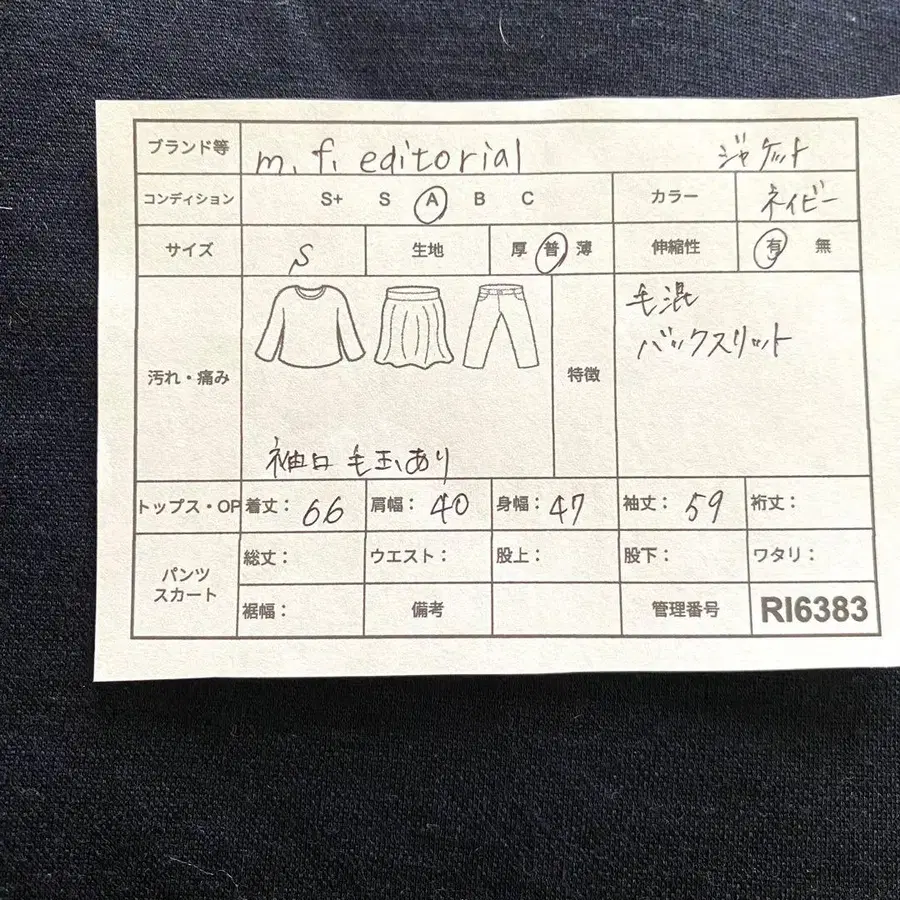 ブランド等 m.f.editorial ジャケット
コンディション S+ S A B C カラー ネイビー
サイズ S 生地 厚 普 薄 伸縮性 有 無
汚れ・痛み 袖口 毛玉あり 特徴 毛混
バックスリット
トップス・OP 着丈：66 肩幅：40 身幅：47 袖丈：59 裄丈：
パンツ スカート 総丈： ウエスト： 股上： 股下： ワタリ：
裾幅： 備考 管理番号 RI6383